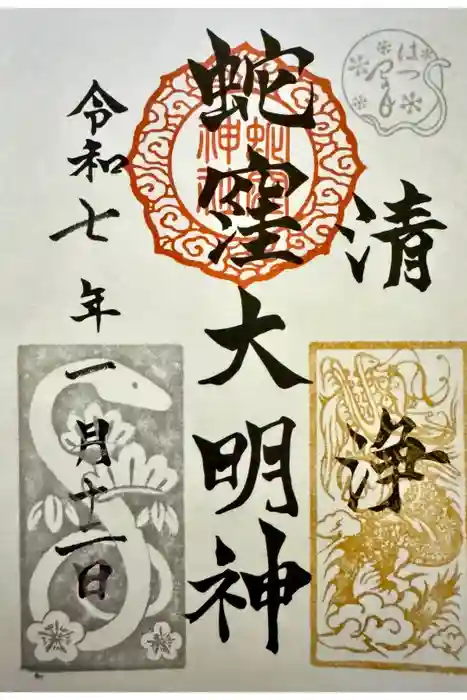 はつ
清浄
蛇窪大明神
蛇窪神社
令和七年一月十二日